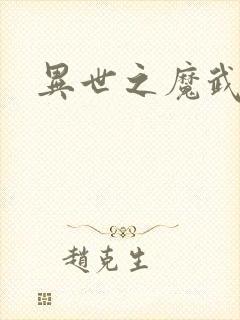 異世之魔武
趙克生